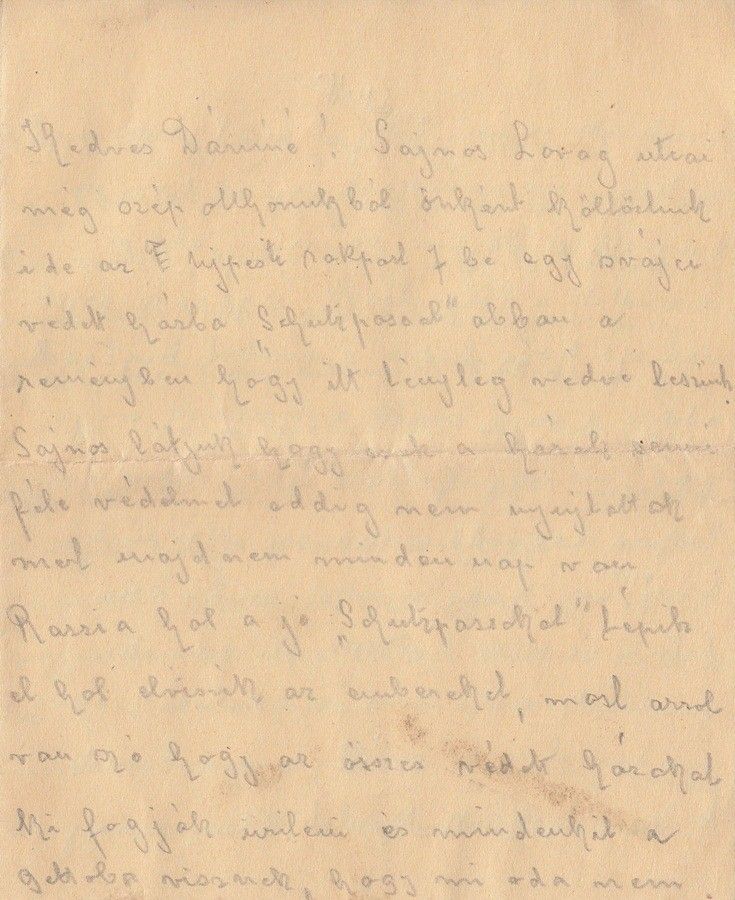 Kedves Dániné! Sajnos Lovag utcai
még szép otthonukból önként költöztünk
ide az Ujpesti rakpart 7 be egy svájci
védett házba „Schutzpassal" abban a
reményben hogy itt tényleg védve leszünk.
Sajnos látjuk hogy ezek a házak semmi
féle védelmet eddig nem nyujtottak
mert majdnem minden nap van
Razzia hol a jó „Schutzpassokat" tépik
el hol elviszik az embereket, most arrol
van szó hogy az összes védett házakat
ki fogják üriteni és mindenkit a
gettoba visznek, hogy mi oda nem